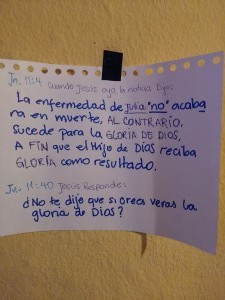 Jn. 11:4 Cuando Jesús oyo la noticia Dijo:
La enfermedad de Julia "no" acaba
ra en muerte, AL CONTRARIO,
Sucede para la GLORIA DE DIOS,
A FIN que el Hijo de DIOS reciba
GLORIA como resultado.
Jn. 11:40 Jesús Responde:
¿No te dije que si crees veras la
gloria de Dios?